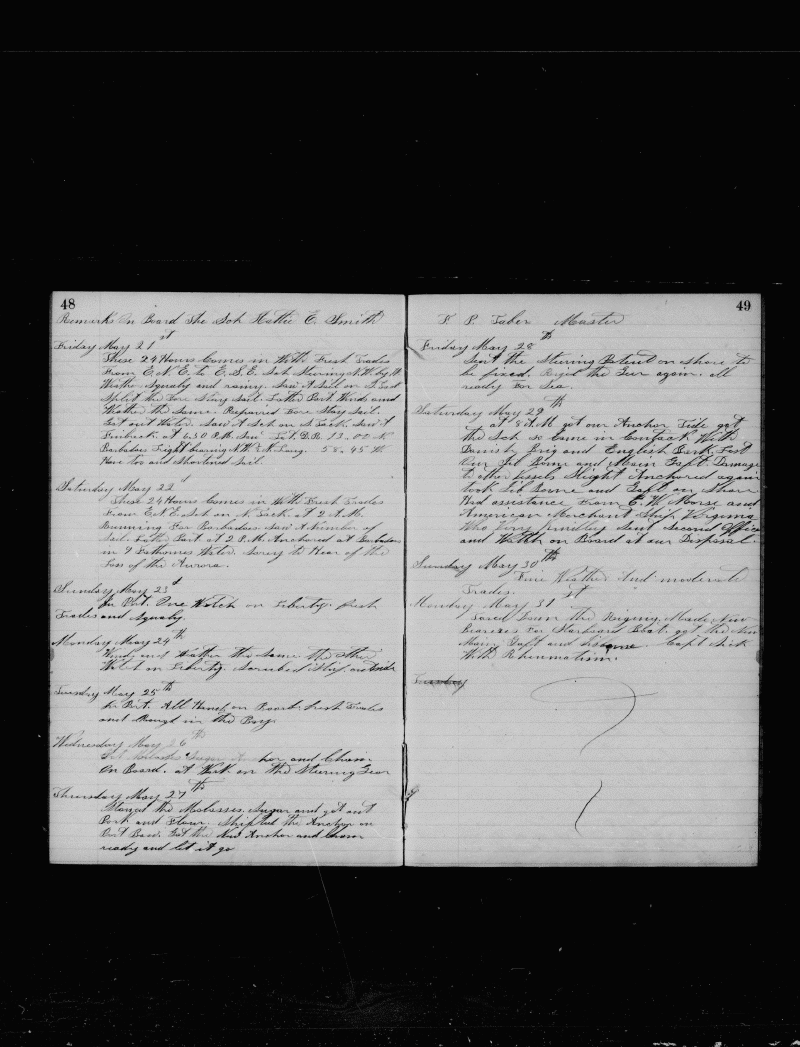 48
Remarks On Board the Sch Hattie E. Smith
Friday May 21st
These 24 Hours Comes in With Fresh Trades
From E.N.E. to E.S.E. Sch Stering N.W. by W
Weathe Squaly and rainy. Saw A Sail on
Split the Fore Stay Sail. Latter Part Winds and
Weathe the Same. Repaired Fore Stay Sail.
Got out Water. Saw A Sch on S. Tack. Saw A
Finback at 6.30 P.M. Saw Lat. D.R. 13-00 N
Barbadoes Light bearing N.W. ½ N Long. 58-45 W
Have too and Shortened Sail.
Saturday May 22d
These 24 Hours Comes in With Fresh Trades
From E.N.E. Sch on N. Tack. at 2 A.M.
Running For Barbadoes Saw A Number of
Sail. Latter Part at 2 P.M. Anchored at Barbadoes
in 9 Fathomes Water. Sorry to Hear of the
Loss of the Aurora.
Sunday May 23d
In Port. One Watch on Liberty. Fresh
Trades and Squaly.
Monday May 24th
Winds and Weather the Same. the Other
Watch on Liberty. Scrubed Ship outside
Tuesday May 25th
In Port. All Hands on Board Fresh Trades
and Rough in the Bay.
Wednesday May 26th
Got Sugar and Chain
On Board. at Work on the Steering Gear
Thursday May 27th
Stowed the Molasses, Sugar and got out
Pork and Flour. Shipted the Anchor on
Port Bow. Got the New Anchor and Chain
ready and let it go
49
F. P. Taber Master
Friday May 28th
Sent the Steering Patent on Shore to
be fixed. Rigid the Gear again. all
ready For Sea.
Saturday May 29th
at 8 A.M got our Anchor Tide got
the Sch & Came in Contack With
Danish Brig and English Bark. Lost
Our Jib Bome and Main Gaft. Damage
to other Vessels Slight Anchored again
took Jib Bome and Gaft on Shore
Had assistance From C. W. Morse and
American Merchant Ship Virginia
Who Very Kindley Sent Second Officer
and Watch on Board at our Disposal.
Sunday May 30th
Fine Weather And moderate
Trades.
Monday May 31st
Tared Down the Riging. Made New
For Starboard Boat. got the New
Main Gaft and Capt Sick
With Rheumatism.
Tuesday